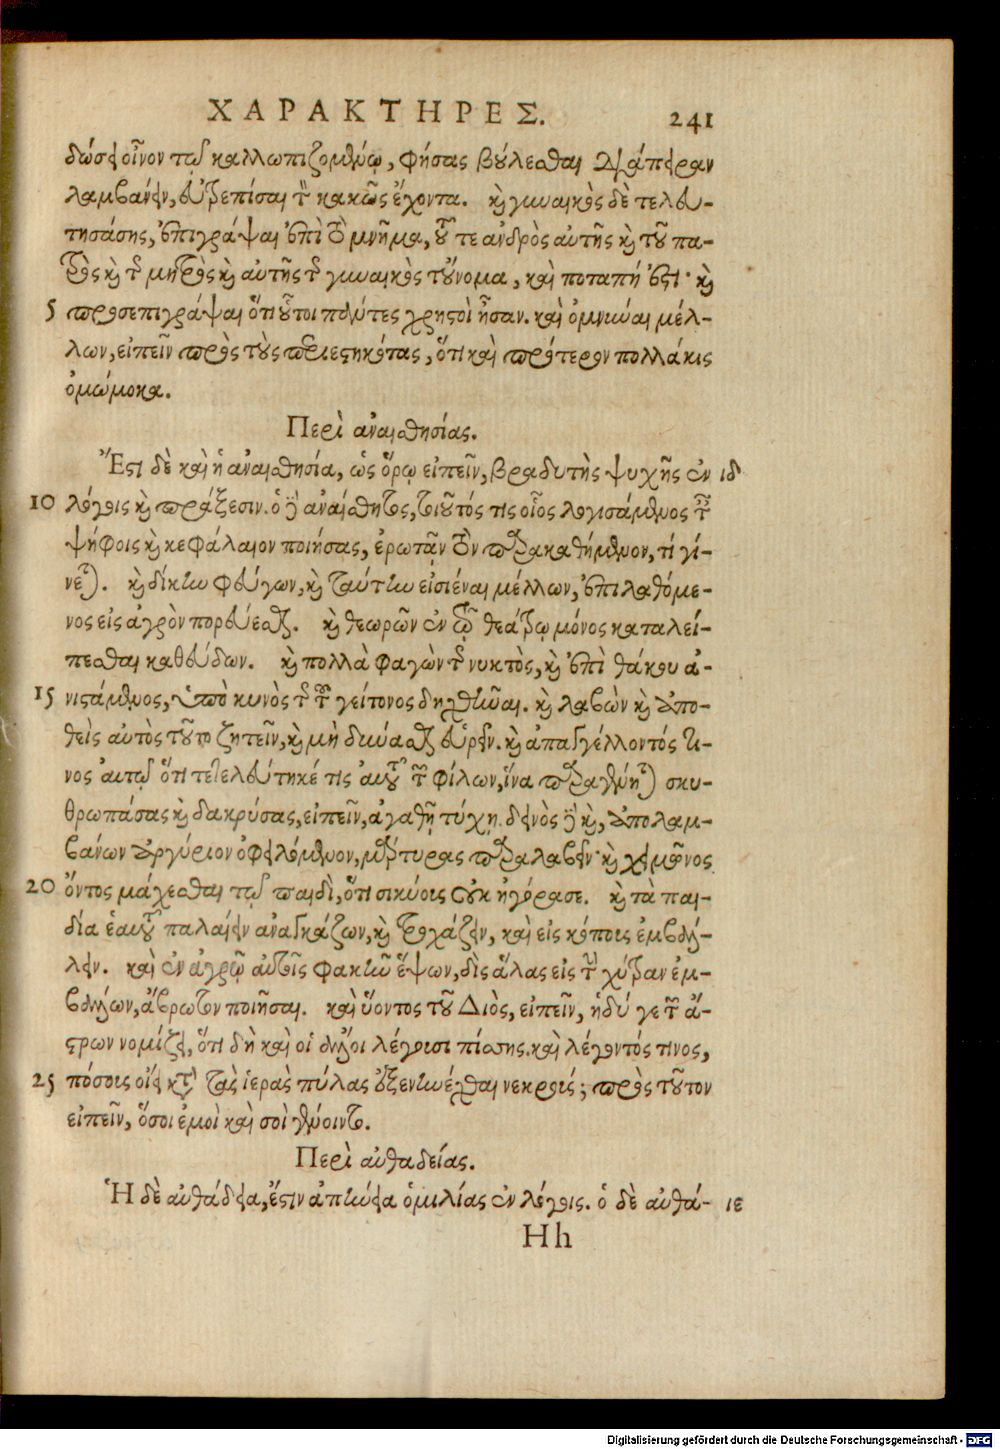 ΧΑΡΑΚΤΗΡΕΣ. 241
δώσει οἶνον τῷ καλλωπιζομένῳ, φήσας βούλεσθαι διάπειραν
λαμβάνειν, εὐτρεπίσαι τὸν κακῶς ἔχοντα. καὶ γυναικὸς δὲ τελευ-
τησάσης, ἐπιγράψαι ἐπὶ τὸ μνῆμα, τοῦ τε ἀνδρὸς αὐτῆς καὶ τοῦ πα-
τρὸς καὶ τῆς μητρὸς καὶ αὐτῆς τῆς γυναικὸς τοὔνομα, καὶ ποταπή ἐστι· καὶ
5 προσεπιγράψαι ὅτι οὗτοι πάντες χρηστοὶ ἦσαν. καὶ ὀμνύναι μέλ-
λων, εἰπεῖν πρὸς τοὺς περιεστηκότας, ὅτι καὶ πρότερον πολλάκις
ὀμώμοκα.
Περὶ ἀναισθησίας.
Ἔστι δὲ καὶ ἡ ἀναισθησία, ὡς ὅρῳ εἰπεῖν, βραδυτὴς ψυχῆς ἐν ιδ
10 λόγοις καὶ πράξεσιν. ὁ γὰρ ἀναίσθητος, τοιοῦτός τις οἷος λογισάμενος ταῖς
ψήφοις καὶ κεφάλαιον ποιήσας, ἐρωτᾷν τὸν παρακαθήμενον, τί γί-
νεται. καὶ δίκην φεύγων, καὶ ταύτην εἰσιέναι μέλλων, ἐπιλαθόμε-
νος εἰς ἀγρὸν πορεύεσθαι. καὶ θεωρῶν ἐν τῷ θεάτρῳ μόνος καταλεί-
πεσθαι καθεύδων. καὶ πολλὰ φαγὼν τῆς νυκτὸς, καὶ ἐπὶ θάκου ἀ-
15 νιστάμενος, ὑπὸ κυνὸς τῆς τοῦ γείτονος δηχθῆναι. καὶ λαβὼν καὶ ἀπο-
θεὶς αὐτὸς τοῦτο ζητεῖν, καὶ μὴ δύνασθαι εὑρεῖν. καὶ ἀπαγγέλλοντός τι-
νος αὐτῷ ὅτι τετελεύτηκέ τις αὐτοῦ τῶν φίλων, ἵνα παραγένηται σκυ-
θρωπάσας καὶ δακρύσας, εἰπεῖν, ἀγαθῇ τύχῃ. δεινὸς γὰρ καὶ, ἀπολαμ-
βάνων ἀργύριον ὀφειλόμενον, μάρτυρας παραλαβεῖν· καὶ χειμῶνος
20 ὄντος μάχεσθαι τῷ παιδὶ, ὅτι σικύους οὐκ ἠγόρασε. καὶ τὰ παι-
δία ἑαυτοῦ παλαίειν ἀναγκάζων, καὶ τροχάζειν, καὶ εἰς κόπους ἐμβάλ-
λειν. καὶ ἐν ἀγρῷ αὐτοῖς φακῆν ἕψων, δὶς ἅλας εἰς τὴν χύτραν ἐμ-
βαλὼν, ἄβρωτον ποιῆσαι. καὶ ὕοντος τοῦ Διὸς, εἰπεῖν, ἡδύ γε τῶν ἄ-
στρων νομίζει, ὅτι δὴ καὶ οἱ ἄλλοι λέγουσι πίσσης. καὶ λέγοντός τινος,
25 πόσους οἴει κατὰ τὰς ἱερὰς πύλας ἐξενηνέχθαι νεκρούς; πρὸς τοῦτον
εἰπεῖν, ὅσοι ἐμοὶ καὶ σοὶ γένοιντο.
Περὶ αὐθαδείας.
Ἡ δὲ αὐθάδεια, ἔστιν ἀπήνεια ὁμιλίας ἐν λόγοις. ὁ δὲ αὐθά- ιε
Hh
Digitalisierung gefördert durch die Deutsche Forschungsgemeinschaft - DFG